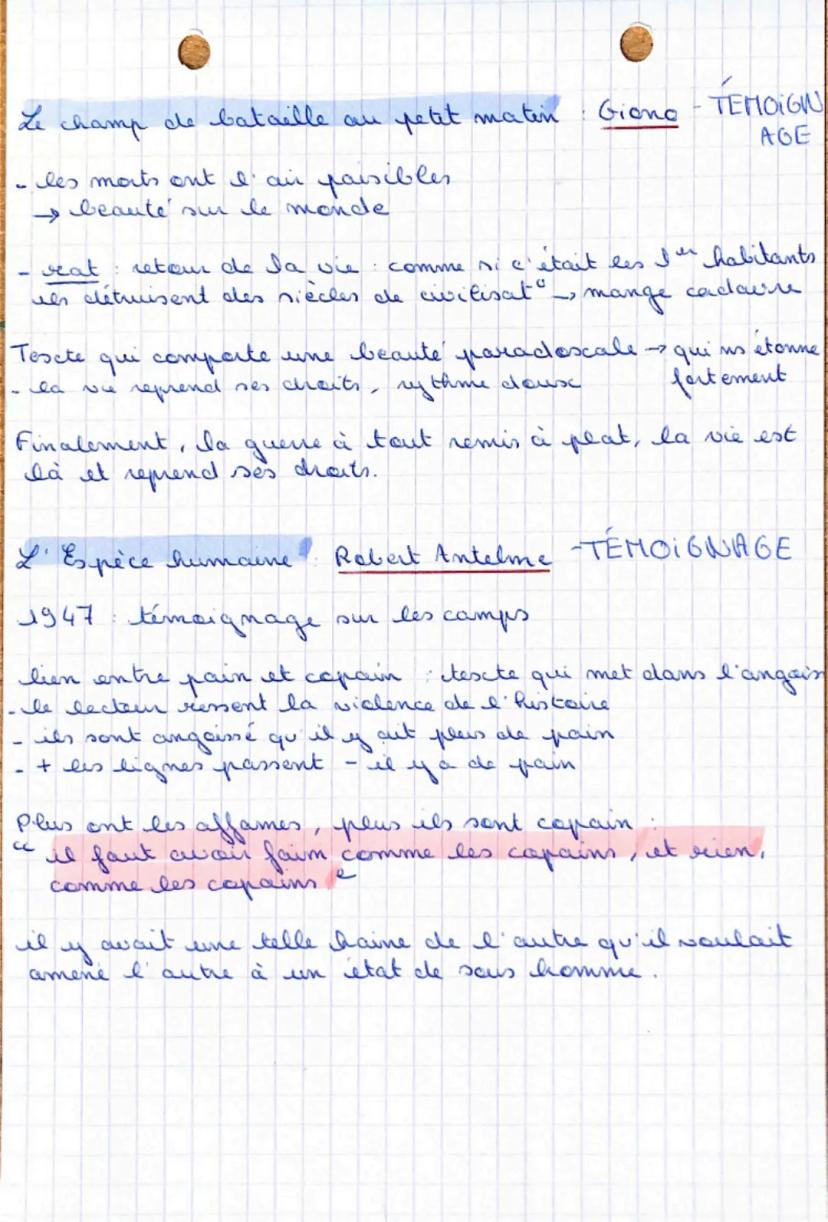 Le champ de bataille au petit matin : Giono - TÉMOIGN
AGE
- les morts ont l'air paisibles
→ beauté sur le monde
- rat : retour de la vie : comme si c'était les 1er habitants
ils détruisent des siècles de civilisat° → mange cadavre
Texte qui comporte une beauté paradoxale → qui ns étonne
- la vie reprend ses droits, rythme doux fortement
Finalement, la guerre à tout remis à plat, la vie est
là et reprend ses droits.
L'Espèce humaine : Robert Antelme - TÉMOiGNAGE
1947 : témoignage sur les camps
lien entre pain et copain : texte qui met dans l'angois
- le lecteur ressent la violence de l'histoire
- ils sont angoissé qu'il y ait plus de pain
- + les lignes passent - il y a de pain
Plus ont les affames, plus ils sont copain :
" il faut avoir faim comme les copains, et rien,
comme les copains "
il y avait une telle haine de l'autre qu'il voulait
amené l'autre à un état de sous homme.